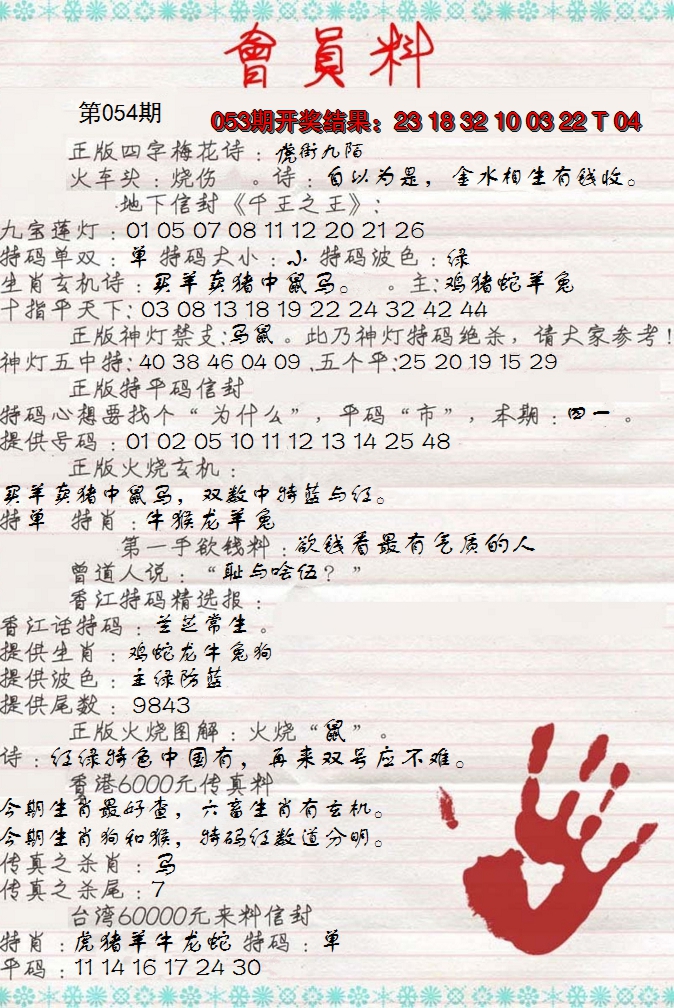 會員料
第054期
053期开奖结果：23 18 32 10 03 22 T 04
正版四字梅花诗：虎街九陌
火车头：烧伤 。诗：自以为是，金水相生有钱收。
地下信封《千王之王》：
九宝莲灯：01 05 07 08 11 12 20 21 26
特码单双：单 特码大小：小 特码波色：绿
生肖玄机诗：买羊卖猪中鼠马。 。主：鸡猪蛇羊兔
十指平天下：03 08 13 18 19 22 24 32 42 44
正版神灯禁支：马鼠。此乃神灯特码绝杀，请大家参考！
神灯五中特：40 38 46 04 09 .五个平：25 20 19 15 29
正版特平码信封
特码心想要找个“为什么”，平码“市”，本期：四一 。
提供号码：01 02 05 10 11 12 13 14 25 48
正版火烧玄机：
买羊卖猪中鼠马，双数中特蓝与红。
特单 特肖：牛猴龙羊兔
第一手欲钱料：欲钱看最有气质的人
曾道人说：“耻与哙伍？”
香江特码精选报：
香江话特码：兰芝常生 。
提供生肖：鸡蛇龙牛兔狗
提供波色：主绿防蓝
提供尾数：9843
正版火烧图解：火烧“鼠”。
诗：红绿特色中国有，再来双号应不难。
香港6000元传真料
今期生肖最好查，六畜生肖有玄机。
今期生肖狗和猴，特码红数道分明。
传真之杀肖：马
传真之杀尾：7
台湾60000元来料信封
特肖：虎猪羊牛龙蛇 特码：单
平码：11 14 16 17 24 30